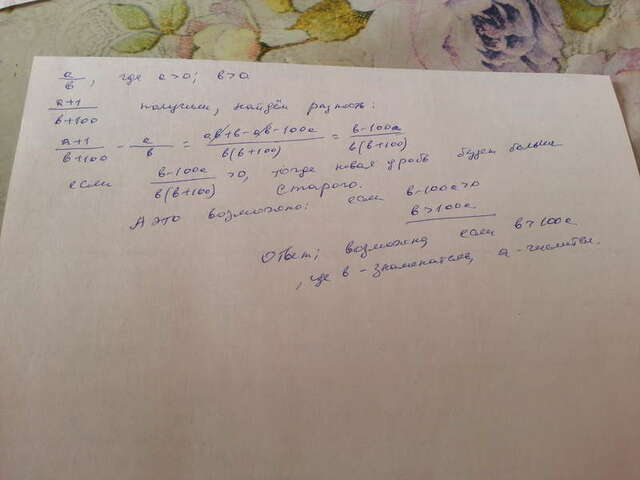 a/b, где a>0; b>0
a+1/b+100 получим, найдём разность:
a+1/b+100 - a/b = ab+b-ab-100a/b(b+100) = b-100a/b(b+100)
если b-100a/b(b+100) >0, тогда новая дробь будет больше
старого.
А это возможно: если b-100a>0
b>100a
Ответ: возможно если b>100a
, где b - знаменатель, a - числител.